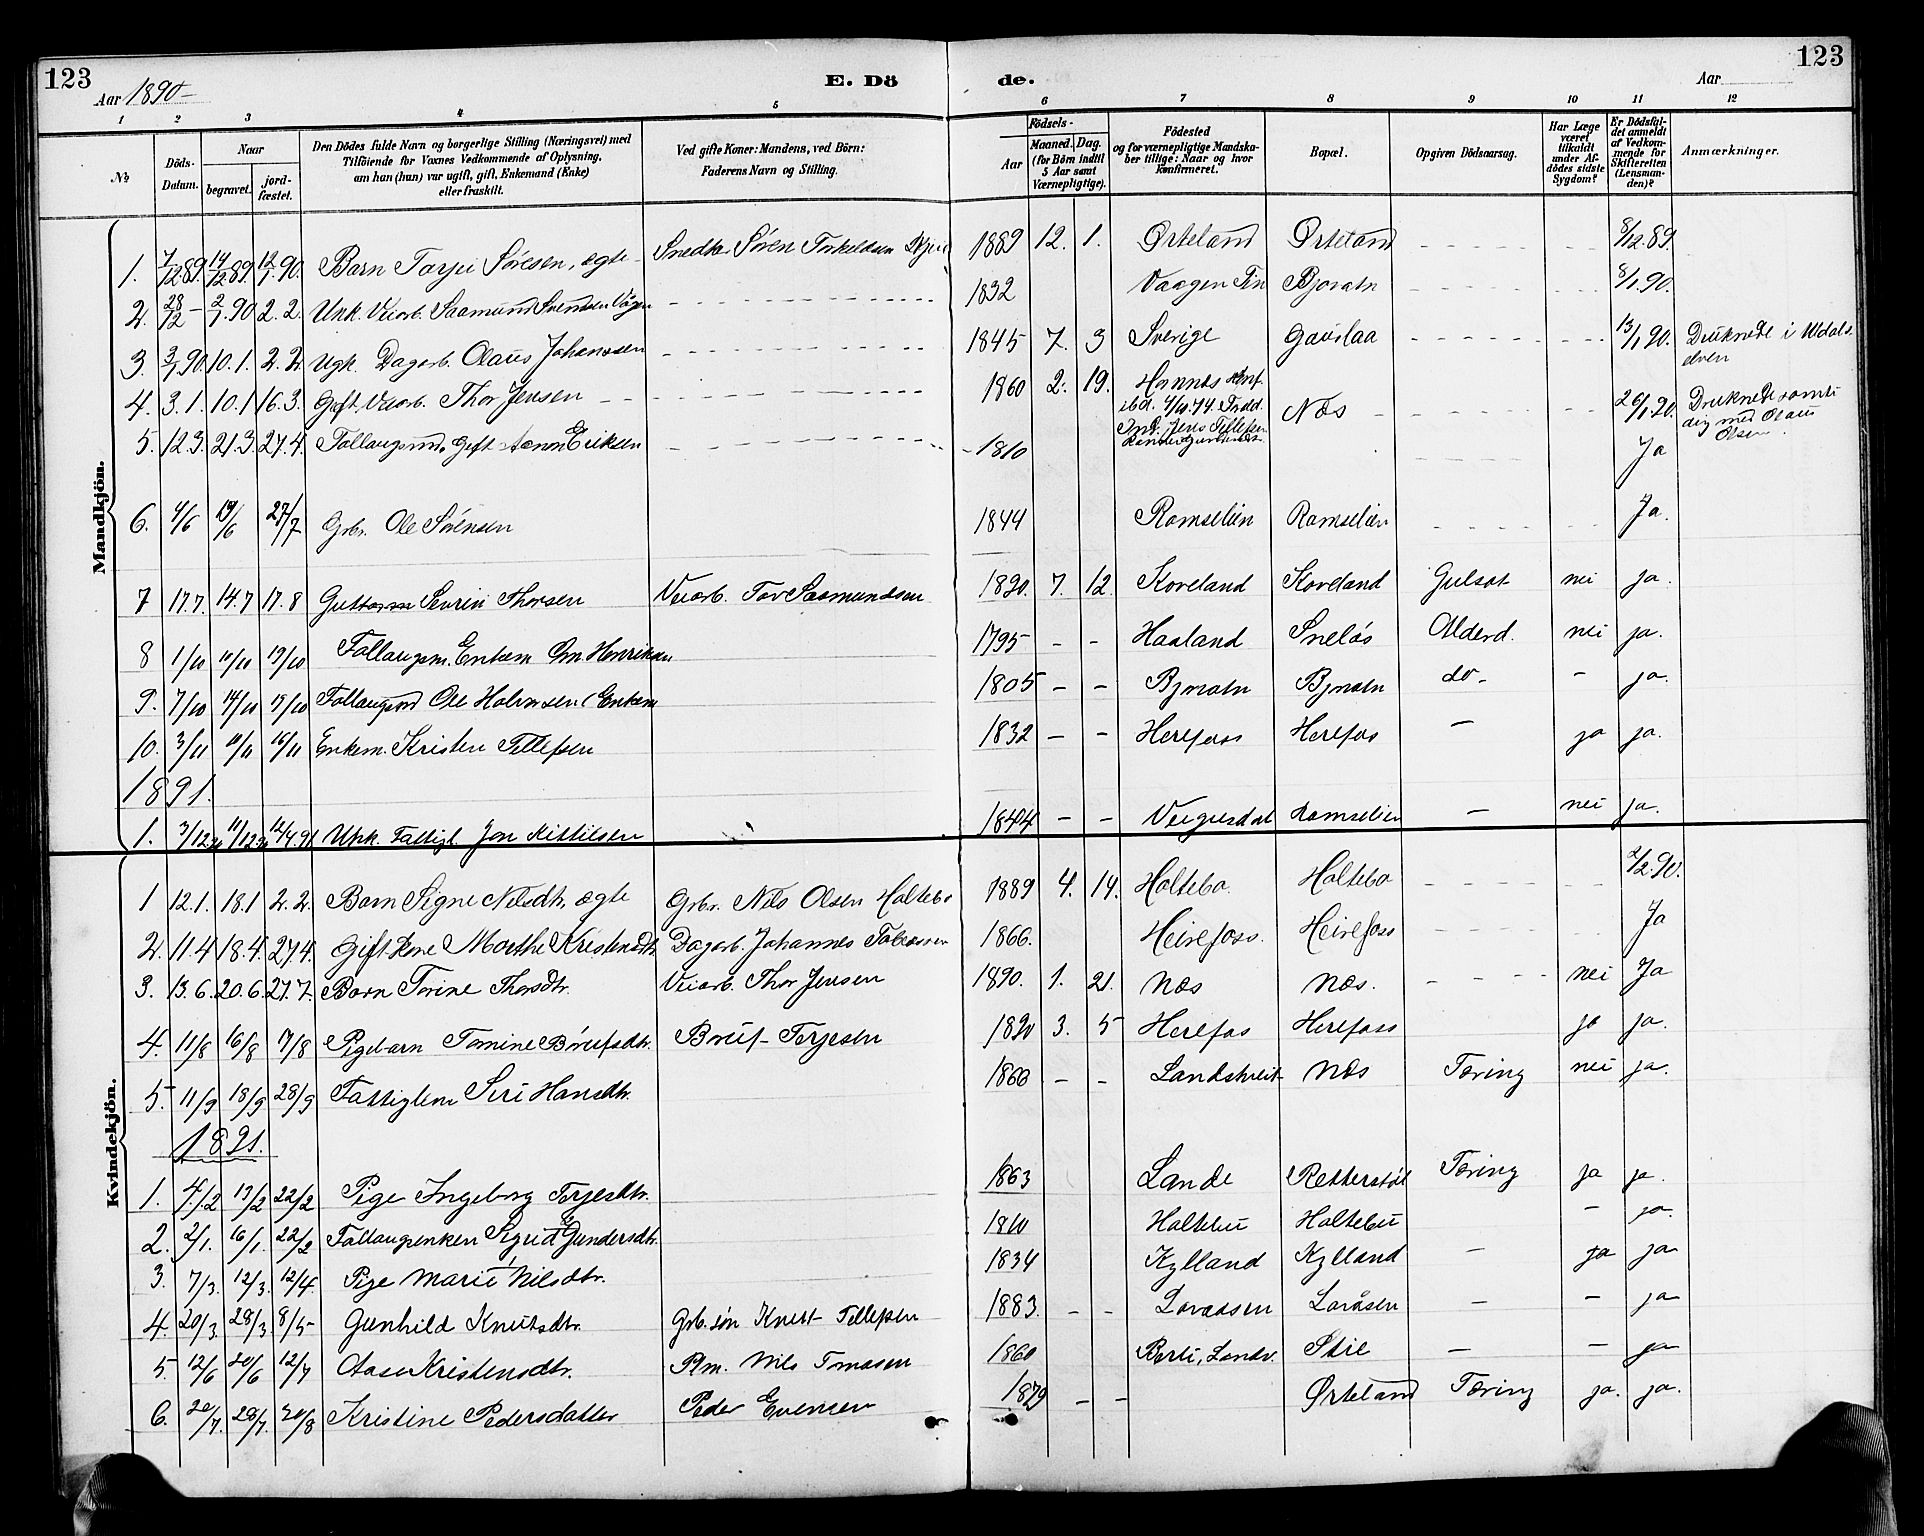 123
Aar 1890
E. Dö
de.
Aar
123
1 2 3 4 5 6 7 8 9 10 11 12
No
Döds-Datum.
Naar
begravet.
jordfæstet.
Den Dödes fulde Navn og borgerlige Stilling (Næringsvei) med
Tilföiende for Voxnes Vedkommende af Oplysning,
om han (hun) var ugift, gift, Enkemand (Enke)
eller fraskilt.
Ved gifte Koner: Mandens, ved Börn:
Faderens Navn og Stilling.
Födsels-
Aar
Maaned. Dag.
(for Börn indtil
5 Aar samt
Værnepligtige).
Födested
og for værnepligtige Mandska-
ber tillige: Naar og hvor
konfirmeret.
Bopæl.
Opgiven Dödsaarsag.
Har Læge
været
tilkaldt
under Af-
dödes sidste
Sygdom?
Er Dödsfal-
det anmeldt
af Vedkom-
mende for
Skifteretten
(Lensman-
den)?
Anmærkninger.
Mandkjön.
1. 7/12 89. 14/12 89. 12/1. 90. Barn Tarjei Söresen, ægte Snedk. Sören Torkeldsen 1889 12. 1. Örteland Örteland 8/12 89.
2. 28/12 2/1. 90 2. 2. Unk. Veiarb. Saamund Svendsen Vågen 1832 Vaagen Bjorvatn 8/1 90.
3. 3/1 90 10. 1. 2. 2. Ugk. Dagarb. Olaus Johannsen 1845 7. 3 Sverige Gauslaa 13/1 90. Druknede i Uldals-
elven
4. 3. 1. 10. 1 16. 3. Gift, Veiarb. Thor Jensen 1860 2. 19. Hornnes Konf.
Næs Druknede samti
dig med Olaus
Olsen.
5. 12. 3. 21. 3. 27. 4. Follaugsmd. Gift Eriksen 1810 Ja
6. 4/6 27/7 Grbr. Ole Sörensen 1844 Ramselien Ramselien Ja.
7 17. 7. 14. 7 17. 8 Guttorm Sevrin Thorsen Veiarb. Tov Saamundsen 1890. 7. 12. Koveland Koveland Gulsot nei ja.
8 1/10 10/10 19/10 Follaugsm. Enkem Om Henriksen 1795 - - Haaland Sneløs Alderd. nei ja.
9. 7/10 14/10 19/10 Follaugsmd Ole Halvorsen (Enkem 1805 - - Bjrvatn Bjrvatn do. - ja.
10. 3/11 10/11 16/11 Enkem. Kristen Tellefsen 1832 - - Herefoss Herefos - ja ja.
1891.
1. 3/12 90 11/12 90 12/4. 91 Unk. Fattigl. Jon Kittilsen 1844 - - Veigusdal Ramselien - nei ja.
Kvindekjön.
1 12. 1. 18. 1 2. 2. Barn Signe Nilsdtr, ægte Grbr. Nils Olsen Haltebo 1889 4. 14. Haltebo. Haltebo 2/2. 90.
2. 11. 4 18. 4. 27 4. Gift Kone Marthe Kristensdtr. Dagarb. Johannes Tobiassen 1866. Heirefoss. Heirefoss Ja
3. 13. 6. 20. 6. 27. 7. Barn Torine Thorsdtr. Veiarb. Thor Jensen 1890. 1. 21. Næs Næs. nei Ja
4. 11/8 16/8 7/8 Pigebarn Tomine Brüfsdtr. Brüf Terjesen 1890 3. 5 Herefos Herefoss ja ja.
5. 11/9 18/9 28/9 Fattiglem Siri Hansdtr. 1866 - - Landstveit Næs Tæring nei ja.
1891.
1. 4/2 13/2 22/2 Pige Ingeborg Terjesdtr. 1863 Lande Retterstøl Tæring ja ja.
2. 2/1. 16/1. 22/2 Follaugsenken Sigrid Gundersdtr. 1810 Haltebu Haltebu - ja.
3. 7/3. 12/3. 12/4. Pige Marie Nilsdtr. 1834 Kylland Kylland - ja ja
4. 20/3. 28/3. 8/5 Gunhild Knutsdtr. Grb. søn Knut Tellefsen 1883. - - Loraasen Loråsen - - ja
5. 12/6 20/6 12/7 Aase Kristensdtr. Plm. Nils Tomasen 1860 Berli, Landv. Stie - - ja
6. 20/7. 28/7. 30/8 Kristine Pedersdatter Peder Evensen 1879 - - Ørteland Tæring ja. ja.